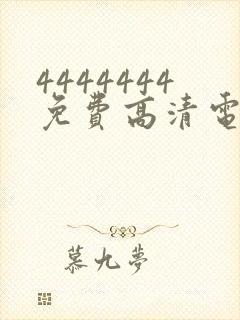 4444444
免費高清電
慕九夢